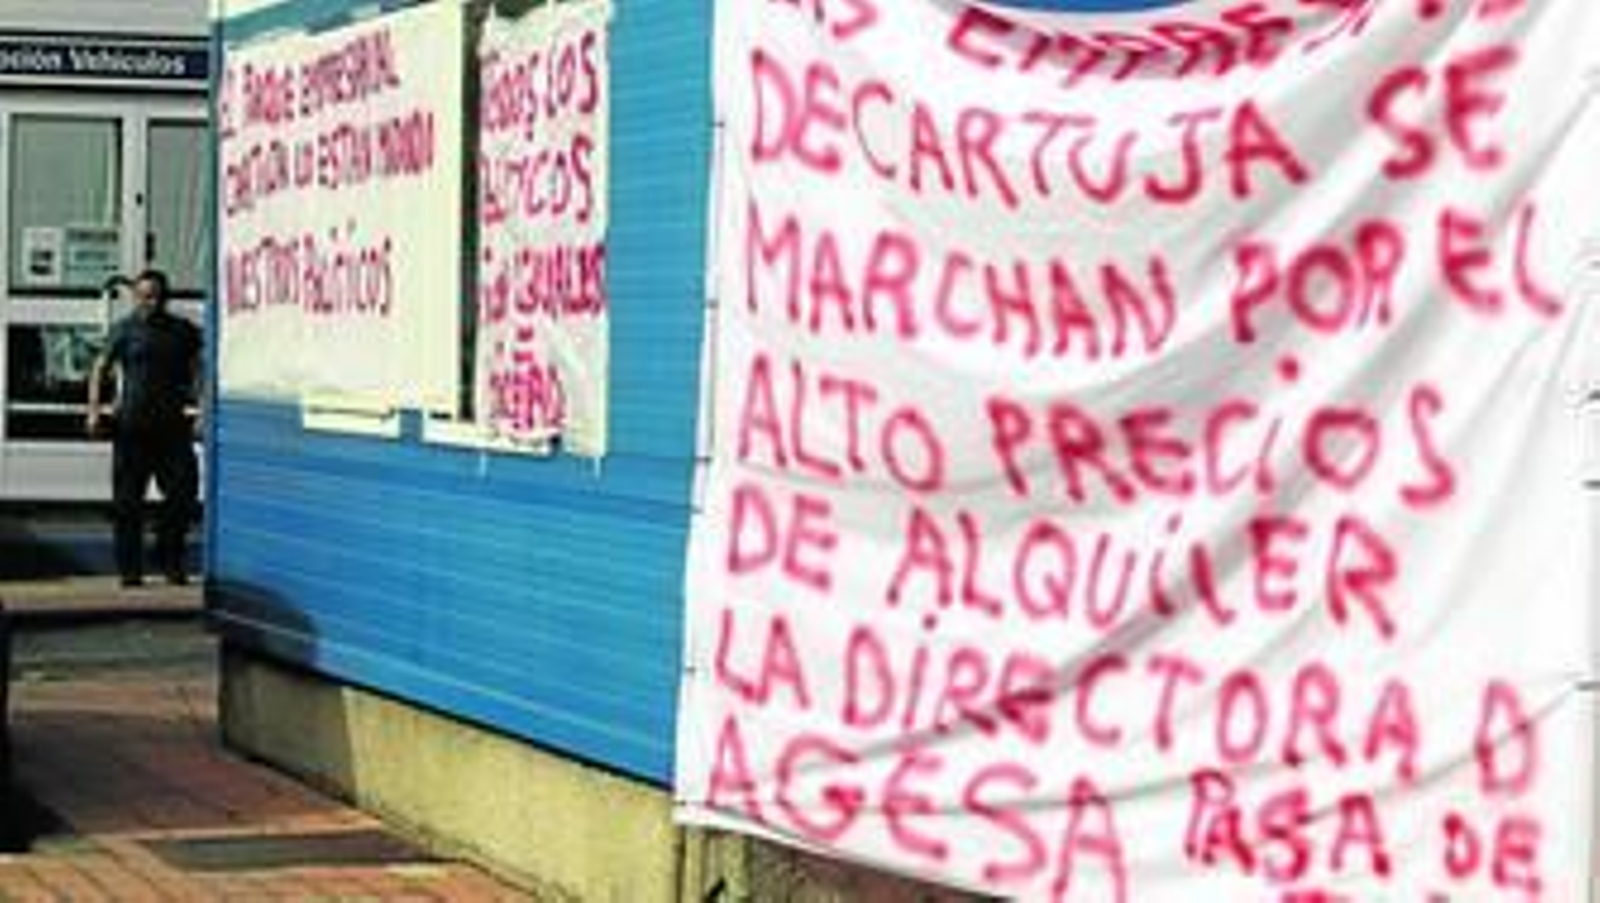 ción Vehículos
EL PARQUE EMPRESARIAL
CARTUJA LO ESTAN
NUESTROS POLÍTICOS
TODOS LOS
POLITICOS
SON IGUALES
DINERO
LAS EMPRESAS
DE CARTUJA SE
MARCHAN POR EL
ALTO PRECIOS
DE ALQUILER
LA DIRECTORA D
AGESA PASA DE